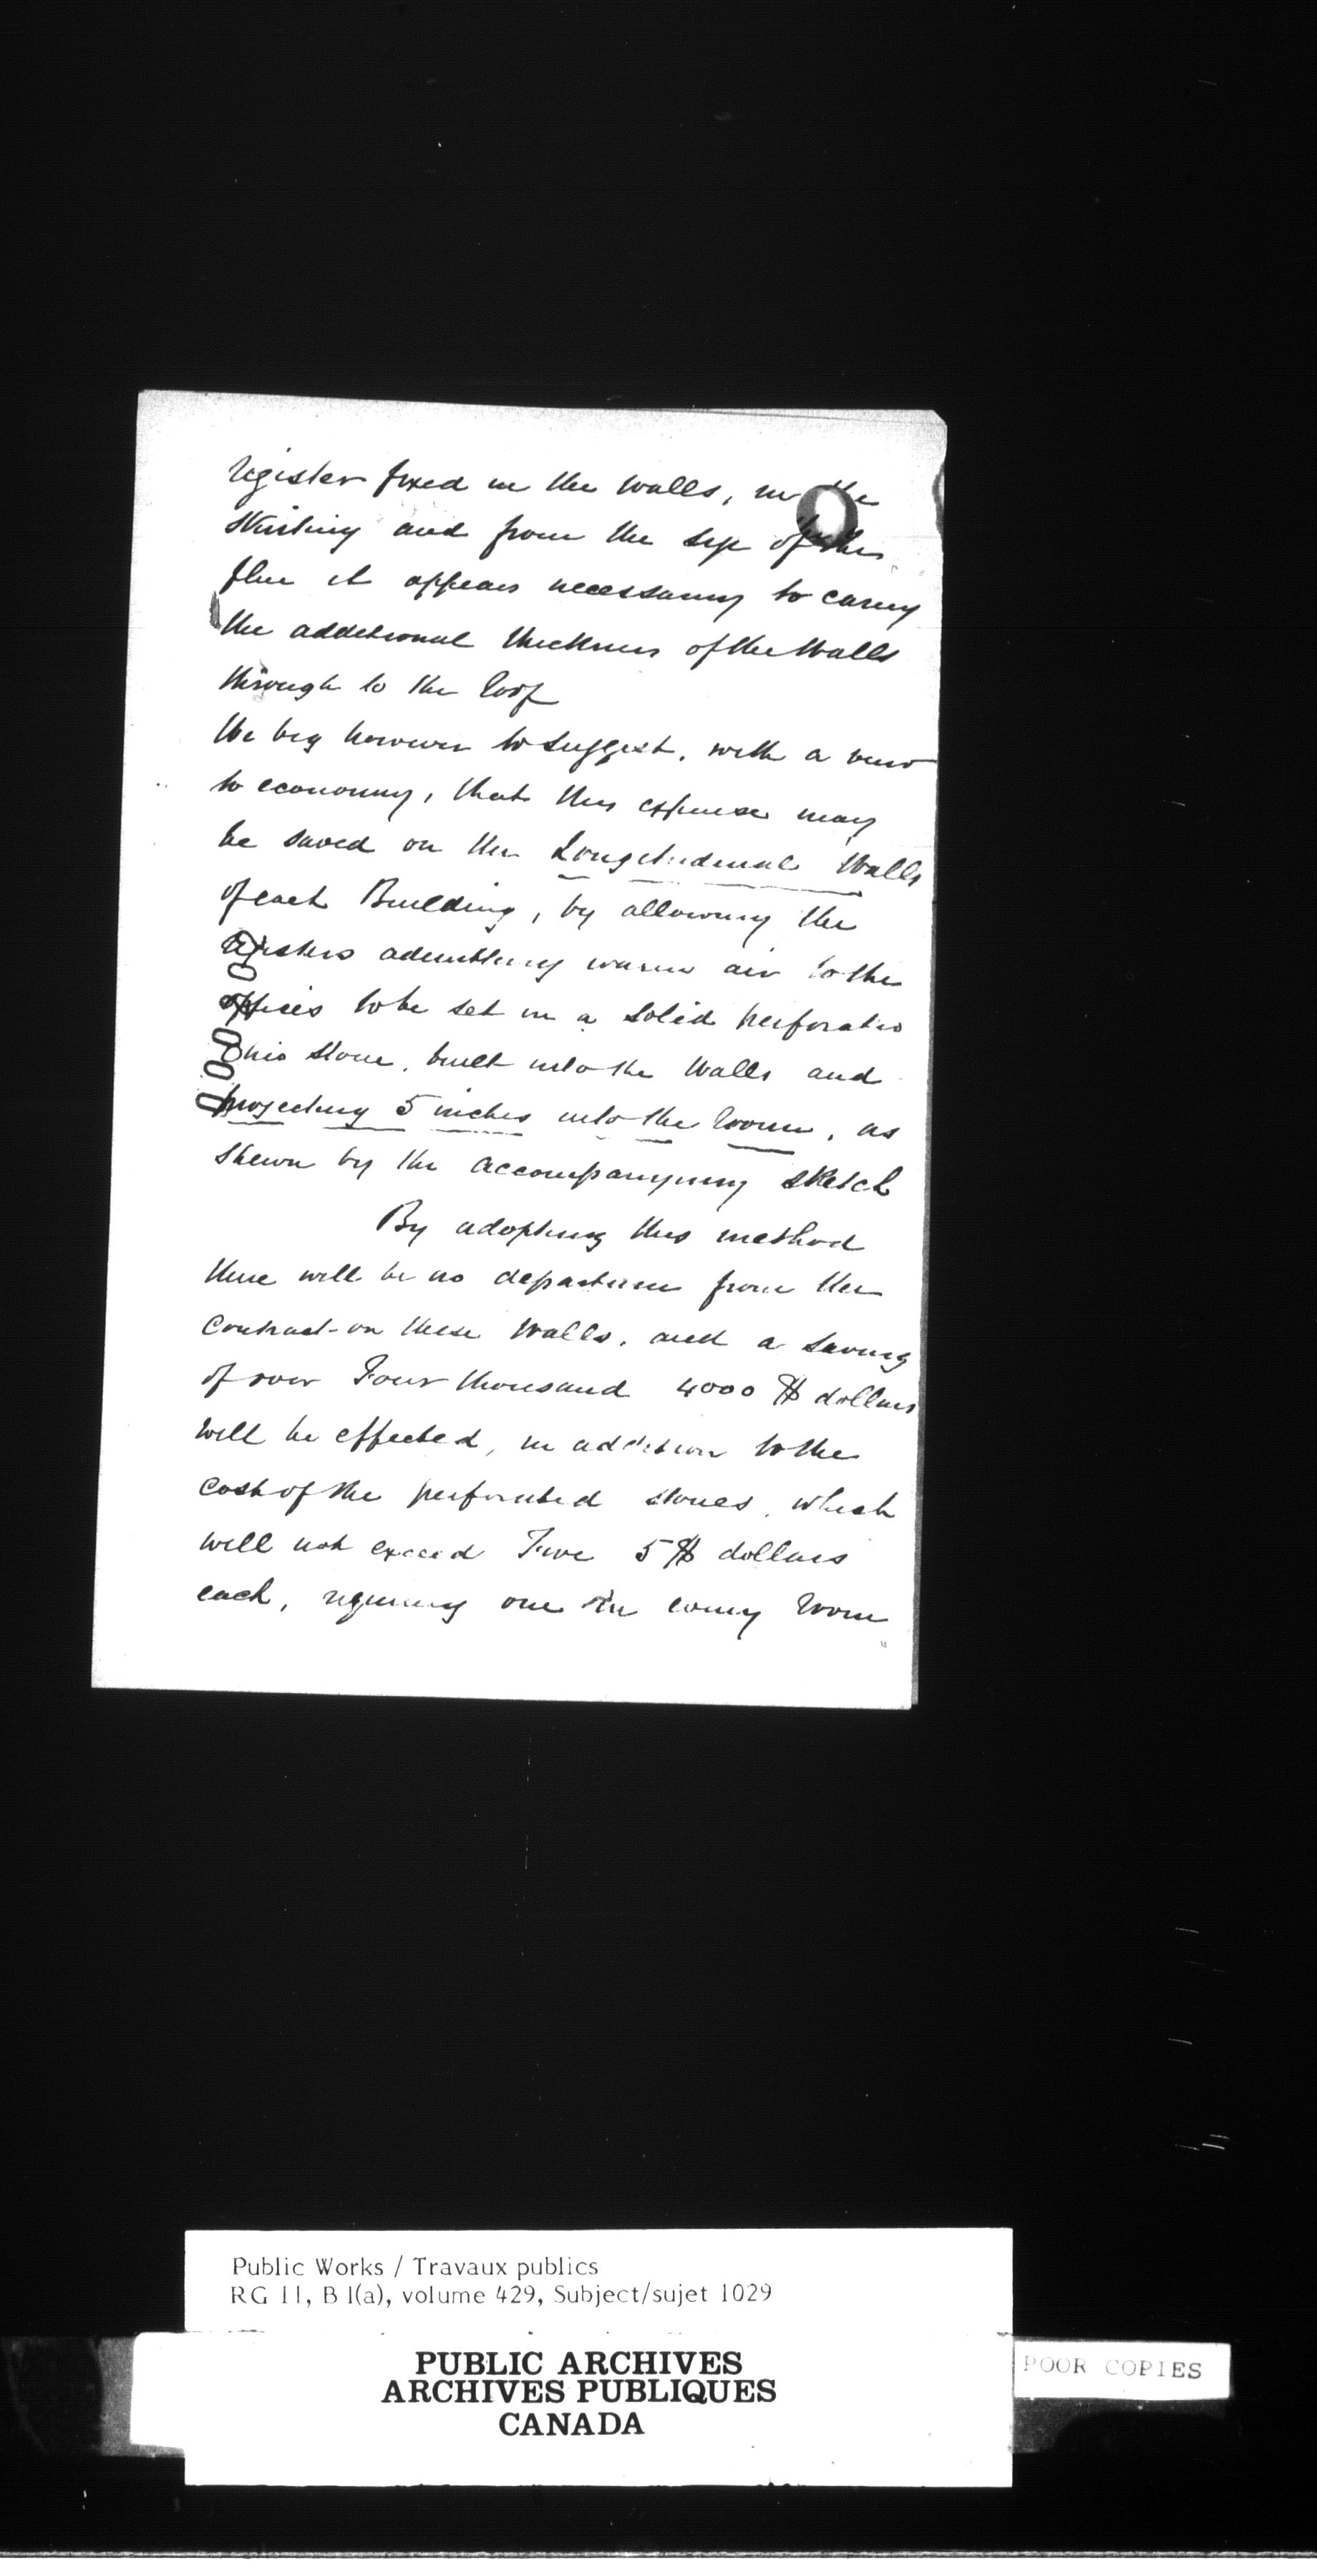 register fixed in the walls, in the
skirting and from the size of the
flue it appears necessary to carry
the additional thickness of the Walls
through to the roof
We beg however to suggest, with a view
to economy, that this expense may
be saved on the Longitudinal Walls
of each Building, by allowing the
registers admitting warm air to the
offices to be set in a solid perforated
Ohio stone, built into the Walls and
projecting 5 inches into the room, as
shewn by the accompanying sketch
By adopting this method
there will be no departure from the
Contract on these Walls, and a saving
of over Four thousand 4000 $ dollars
will be effected, in addition to the
cost of the perforated stones, which
will not exceed Five 5 $ dollars
each, requiring one in every room
Public Works / Travaux publics
RG 11, B 1(a), volume 429, Subject/sujet 1029
PUBLIC ARCHIVES
ARCHIVES PUBLIQUES
CANADA
POOR COPIES